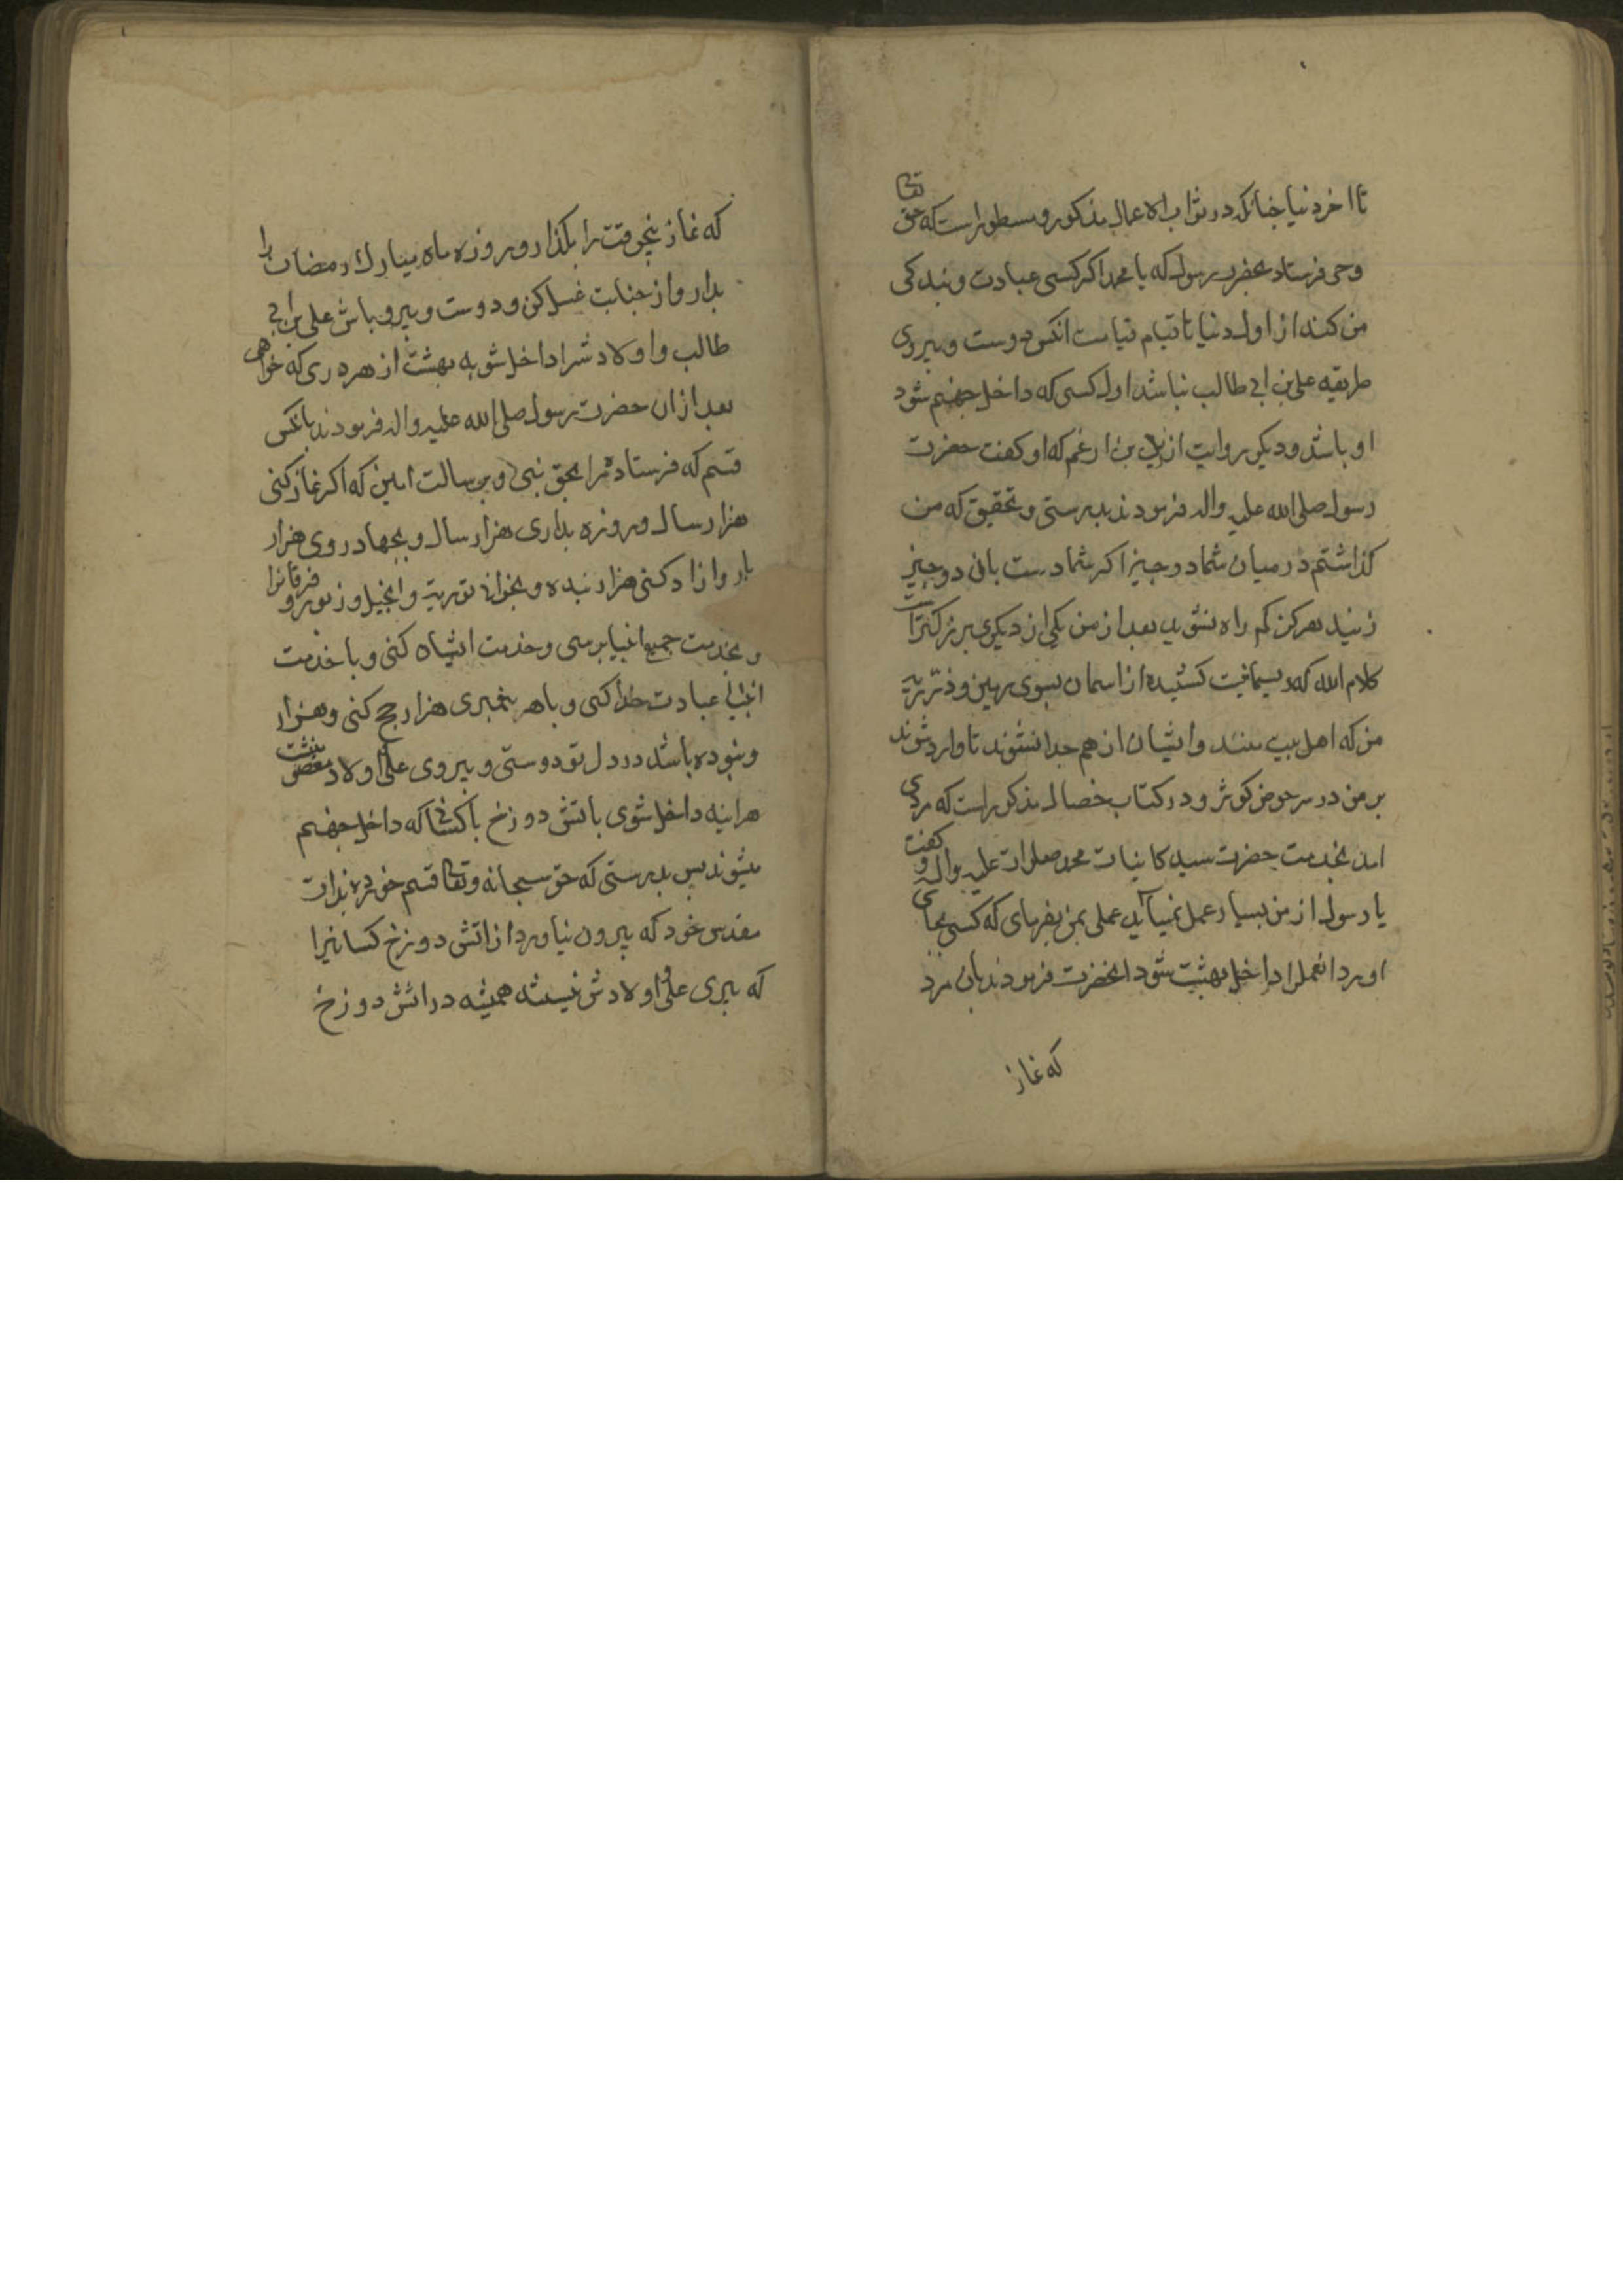 تا اخر دنیا چنانکه در ثواب الاعمال مذکور و مسطور است که حق تعالی
وحی فرستاد بحضرت رسول که یا محمد اکر کسی عبادت و بندکی
من کند از اول دنیا تا قیام قیامت انکس دوست و پیروی
طریقه علی بن ابی طالب نباشد اول کسی که داخل جهنم شود
او باشد و دیکر روایت از زید بن ارغم که او کفت حضرت
رسول صلی الله علیه واله فرمودند بدرستی و تحقیق که من
کذاشتم در میان شما دو چیز اکر شما دست بان دو چیز
زنید هرکز کم راه نشوید بعد از من یکی از دیکری بزرکتر است
کلام الله که ریسمانیست کشیده از اسمان بسوی زمین و ذریه
من که اهل بیت منند و ایشان از هم جدا نشوند تا وارد شوند
بر من در سر حوض کوثر و در کتاب خصال مذکور است که مردی
امد بخدمت حضرت سید کاینات محمد صلوات علیه واله و کفت
یا رسول از من بسیار عمل نمیآید عملی بمن بفرمای که کسی بجای
اورد انعملرا داخل بهشت شود انحضرت فرمودند بان مرد
که نماز
که نماز پنج وقت را بکذار و روزه ماه مبارک رمضان را
بدار و از جنابت غسل کن و دوست و پیرو باش علی بن ابی
طالب و اولادش را داخل شو به بهشت از هر دری که خواهی
بعد از ان حضرت رسول صلی الله علیه واله فرمودند بانکس
قسم که فرستاده مرا بحق نبی و برسالت امین که اکر نماز کنی
هزار سال و روزه بداری هزار سال و بجهاد روی هزار
بار و ازاد کنی هزار بنده و بخوانی توریة و انجیل و زبور و فرقانرا
و بخدمت جمیع انبیا برسی و خدمت ایشان کنی و با خدمت
انبیا عبادت خدا کنی و با هر پیغمبری هزار حج کنی و هزار
و نبوده باشد در دل تو دوستی و پیروی علی و اولاد
هراینه داخل شوی باتش دوزخ با کسانی که داخل جهنم
میشوند پس بدرستی که حق سبحانه و تعالی قسم خورده بذات
مقدس خود که بیرون نیاورد از اتش دوزخ کسانیرا
که پیری علی و اولادش نیستند همیشه در اتش دوزخ